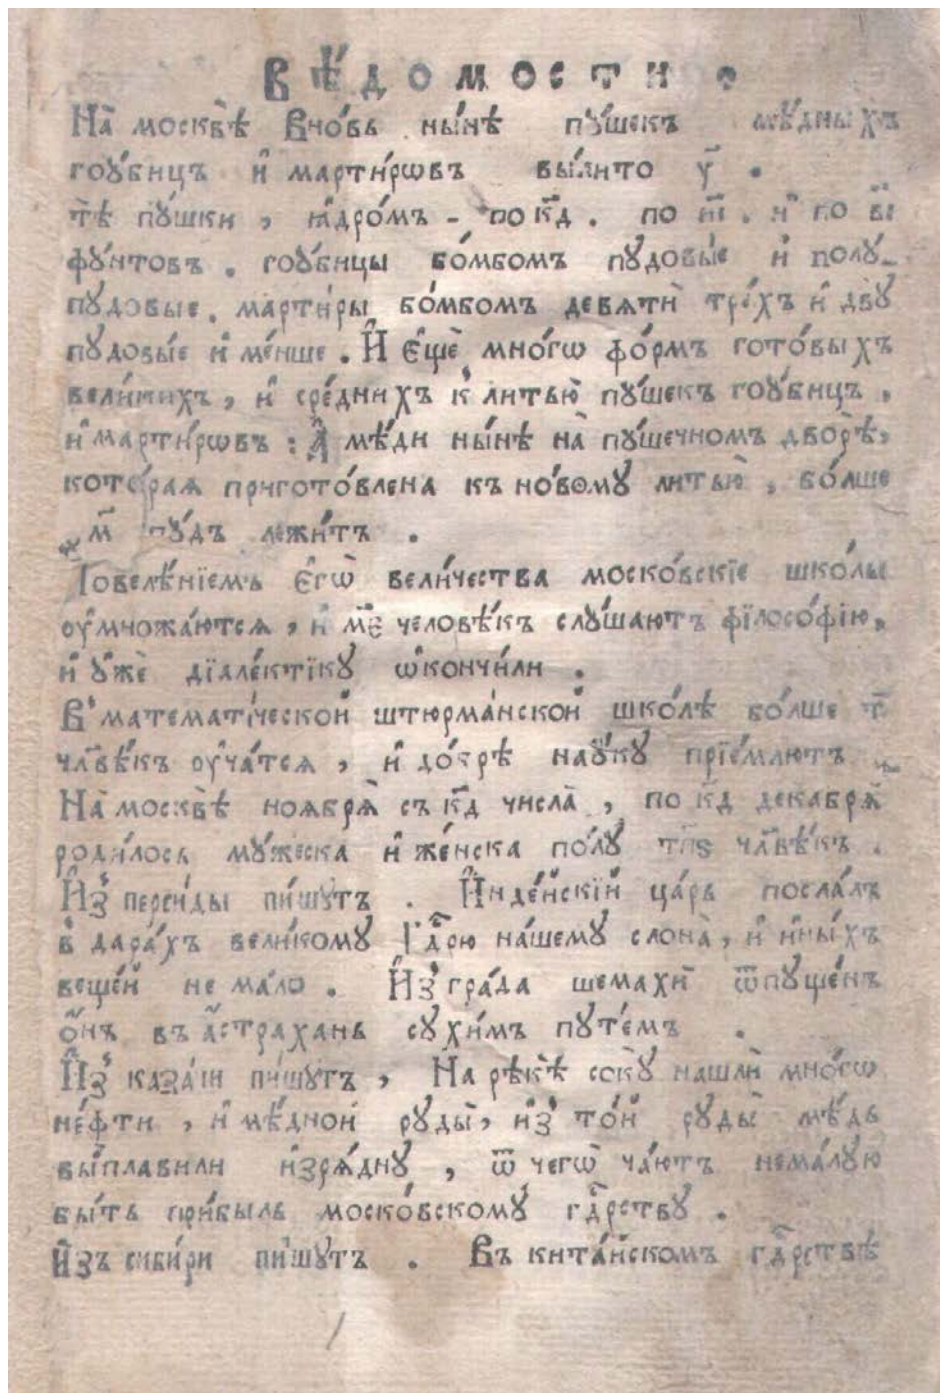 ВѢ́ДОМОСТИ .
На̀ москвѣ̀ внóвь ны́нѣ пу́шекъ мѣ́дныхъ
гоу́бицъ и҆ марти́рѡвъ вы́лито у҃ .
тѣ̀ пу́шки , ꙗ҆дрóмъ - по к҃д . по и҃і . и҆ по в҃і
фу́нтовъ . гоу́бицы бóмбомъ пудовы́е и҆ полу_
пудовые . марти́ры бóмбомъ девятѝ трéхъ и҆ двꙋ
пудовы́е и҆ мéнше . И҆ є҆щѐ мнóгѡ фóрмъ готóвыхъ
вели́кихъ , и҆ срéднихъ к̾ литью̀ пу́шекъ гоу́бицъ ,
и҆ марти́рѡвъ : А҆ мѣ́ди ны́нѣ на̀ пу́шечномъ дворѣ̀,
котóрая приготóвлена къ нóвому литью̀ , бóлше
м҃ пу́дъ лежи́тъ .
Повелѣ́нїемъ є҆гѡ̀ вели́чества москóвскїе шкóлы
оу҆множáются , и҆ м҃є человѣ́къ слу́шаютъ фїлосóфїю,
и҆ у҆жѐ дїалéктїку ѡ҆кончи́ли .
В̾ математи́ческой штюрмáнской шкóлѣ бóлше т҃
чл҃вѣ́къ оу҆чáтся , и҆ дóбрѣ нау́ку прїéмлютъ .
На̀ москвѣ̀ ноября̀ съ к҃д числа̀ , по к҃д декабря̀
роди́лось му́жеска и҆ жéнска пóлу т҃п҃ѕ чл҃вѣ́къ .
И҆з̾ перси́ды пи́шутъ . И҆ндéйскїй цáрь послáлъ
в̾ дарáхъ вели́кому Гдⷭ҇рю нáшему слона̀ , и҆ и҆ны́хъ
вещéй не мáло . И҆з̾ грáда шемахѝ ѿпу́щенъ
ѻ҆́нъ въ а҆́страхань сухи́мъ путéмъ .
И҆з̾ казáни пи́шутъ , На рѣкѣ̀ соку̀ нашлѝ мнóгѡ
нéфти , и҆ мѣ́дной руды̀, и҆з̾ тóй руды̀ мѣ́дь
вы́плавили и҆зря́дну , ѿ чегѡ̀ чáютъ немáлую
бы́ть при́быль москóвскому гдⷭ҇рству .
И҆зъ сиби́ри пи́шутъ . Въ китáйскомъ гдⷭ҇рствѣ